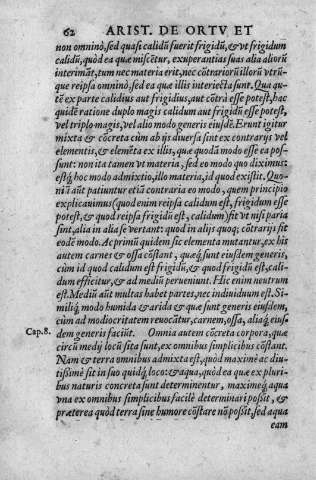 62 ARIST. DE ORTV ET
non omninò, sed quasi calidũ fuerit frigidũ, & vt frigidum
calidũ, quòd ea quæ miscẽtur, exuperantias suas alia aliorũ
interimãt, tum nec materia erit, nec cõtrariorũ illorũ vtrũ-
que reipsa omninò, sed ea quæ illis interiecta sunt. Qua qui-
tẽ ex parte calidius aut frigidius, aut cõtrà esse potest, hac
quidẽ ratione duplo magis calidum aut frigidũ esse potest,
vel triplo magis, vel alio modo generis eiusdẽ. Erunt igitur
mixta & cõcreta cùm ab ijs diuersa sint ex contrarijs vel
elementis, & elemẽta ex illis, quæ quodã modo esse ea pos-
sunt: non ita tamen vt materia, sed eo modo quo diximus:
estq́; hoc modo admixtio, illo materia, id quod existit. Quo-
niã aũt patiuntur etiã contraria eo modo, quem principio
explicauimus (quod enim reipsa calidum est, frigidum esse
potest, & quod reipsa frigidũ est, calidum) fit vt nisi paria
sint, alia in alia se vertant: quod in alijs quoq; cõtrarijs fit
eodẽ modo. Ac primũ quidem sic elementa mutantur, ex his
autem carnes & ossa cõstant, quæq́; sunt eiusdem generis,
cùm id quod calidum est frigidũ, & quod frigidũ est, cali-
dum efficitur, & ad mediũ perueniunt. Hic enim neutrum
est. Mediũ aũt multas habet partes, nec indiuiduum est. Si-
miliq́; modo humida & arida & quæ sunt generis eiusdem,
cùm ad mediocritatem reuocãtur, carnem, ossa, aliaq́; eius-
Cap. 8. dem generis faciũt. Omnia autem cõcreta corpora, quæ
circũ medij locũ sita sunt, ex omnibus simplicibus cõstant.
Nam & terra omnibus admixta est, quòd maximè ac diu-
tissimè sit in suo quidq́; loco: & aqua, quòd ea quæ ex pluri-
bus naturis concreta sunt determinentur, maximeq́; aqua
vna ex omnibus simplicibus facilè determinari possit, &
præterea quòd terra sine humore cõstare nõ possit, sed aqua
eam